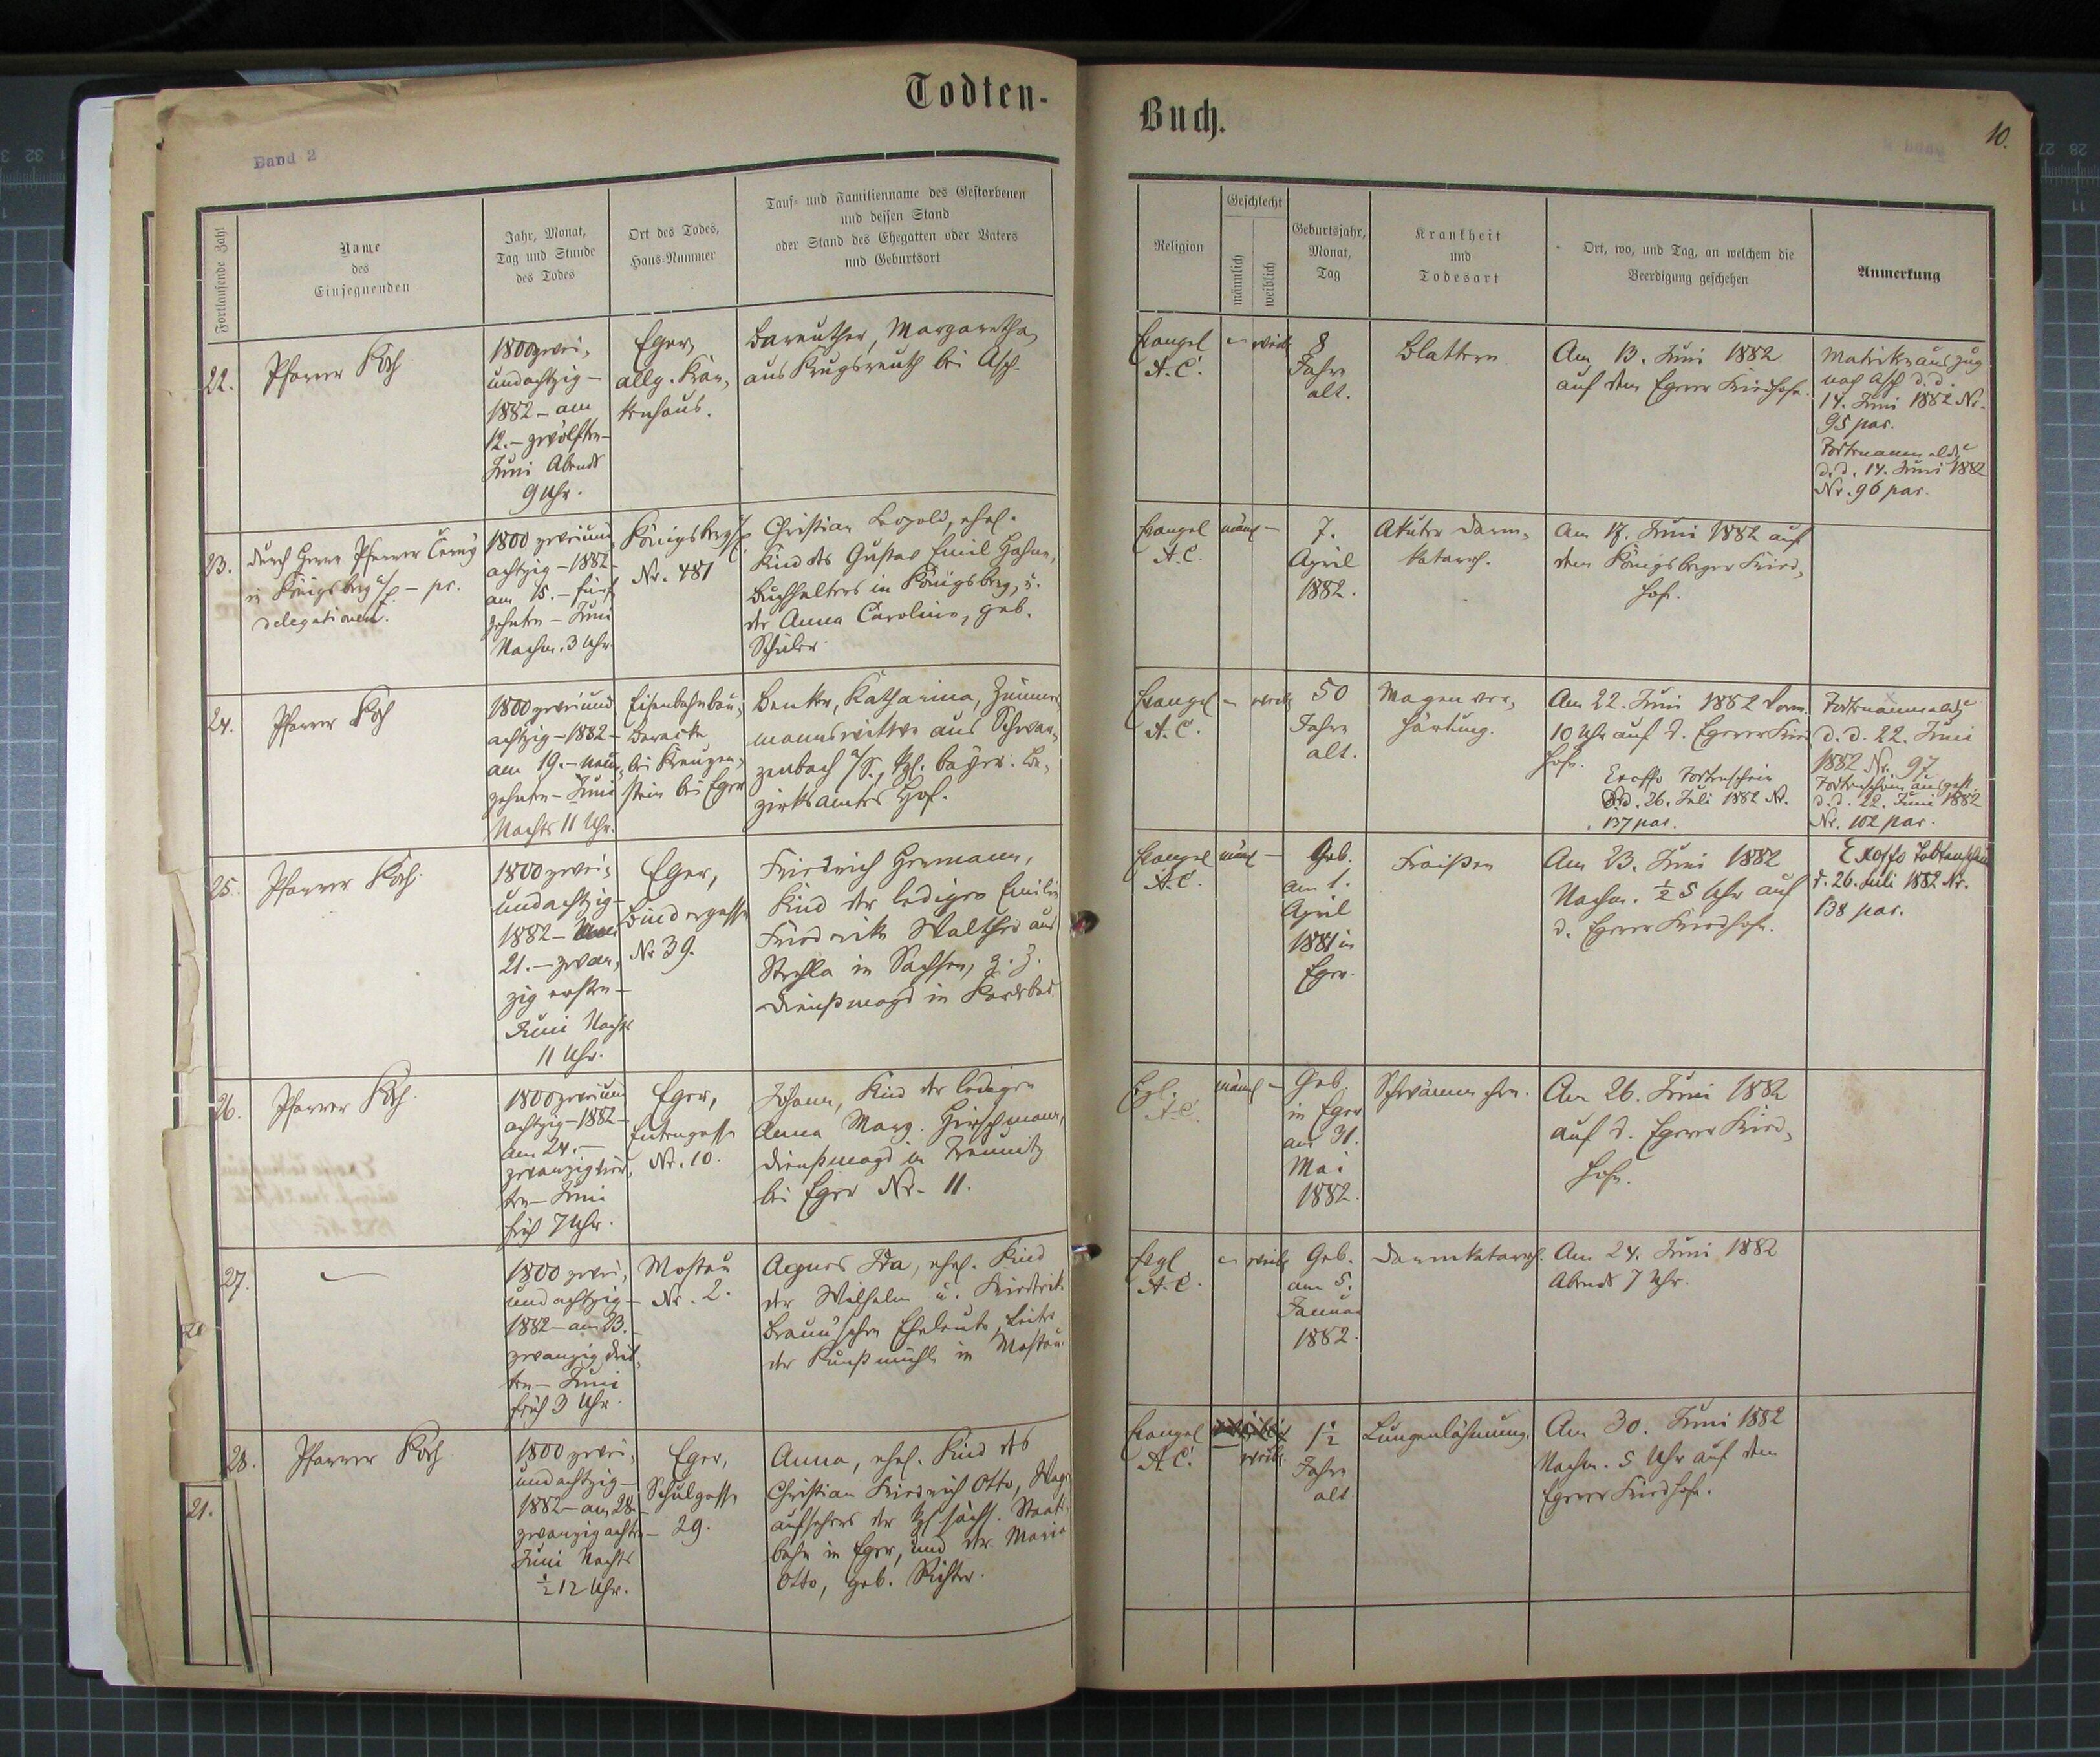 Todten-
Buch.
10.
Band 2
Fortlaufende Zahl
Name
des
Einsegnenden
Jahr, Monat,
Tag und Stunde
des Todes
Ort des Todes,
Haus-Nummer
Tauf- und Familienname des Gestorbenen
und dessen Stand
oder Stand des Ehegatten oder Vaters
und Geburtsort
Religion
Geschlecht
männlich
weiblich
Geburtsjahr,
Monat,
Tag
Krankheit
und
Todesart
Ort, wo, und Tag, an welchem die
Beerdigung geschehen
Anmerkung
22.
Pfarrer Koch
1800zwei-
undachtzig –
1882 – am
12. – zwölften –
Juni Abends
9 Uhr.
Eger,
allg. Kran-
kenhaus.
Bareuther, Margaretha,
aus Krugsreuth bei Asch.
Evangel
A. C.
– weib
8
Jahre
alt.
Blattern
Am 13. Juni 1882
auf dem Egerer Friedhofe.
Matrikenauszug
nach Asch d. d.
14. Juni 1882 Nr.
95 par.
d. d. 14. Juni 1882
Nr. 96 par.
23.
durch Herrn Pfarrer Černý
in Königsberg a/E. – pr.
delegationem.
1800 zweiund
achtzig – 1882 –
am 15. – fünf
zehnten – Juni
Nachm. 3 Uhr
Königsberg a/E.
Nr. 481
Christian Leopold, ehel.
Kind des Gustav Emil Hahn,
Buchhalters in Königsberg, u.
der Anna Caroline, geb.
Schüler
Evangel
A. C.
männl –
7.
April
1882.
Akuter Darm-
katarrh.
Am 17. Juni 1882 auf
dem Königsberger Fried-
hof.
24.
Pfarrer Koch
1800 zweiund
achtzig – 1882 –
am 19. – neun-
zehnten – Juni
Nachts 11 Uhr.
Eisenbahnbau-
Baracke
bei Kreuzen-
stein bei Eger
Benker, Katharina, Zimmer
mannswittwe aus Schwar-
zenbach a/S., kgl. bayer. Be-
zirksamtes Hof.
Evangel
A. C.
– weib
50
Jahre
alt.
Magenver-
härtung.
Am 22. Juni 1882 Vorm.
10 Uhr auf d. Egerer Fried
hofe.
Exoffo Todtenschein
d. d. 26. Juli 1882 Nr.
137 par.
d. d. 22. Juni
1882 Nr. 97
Todtenschein ausgest.
d. d. 22. Juni 1882
Nr. 102 par.
25.
Pfarrer Koch.
1800 zwei-
undachtzig –
1882 –
21. – zwan-
zig ersten –
Juni Nachts
11 Uhr.
Eger,
Bindergasse
Nr. 39.
Friedrich Hermann,
Kind der ledigen Emilie
Friedericke Walther aus
Strehla in Sachsen, z. Z.
Dienstmagd in Karlsbad.
Evangel
A. C.
männl –
Geb.
am 1.
April
1881 in
Eger.
Fraißen
Am 23. Juni 1882
Nachm. ½ 5 Uhr auf
d. Egerer Friedhofe.
Exoffo Todtenschein
d. 26. Juli 1882 Nr.
138 par.
26.
Pfarrer Koch
1800zweiund
achtzig – 1882 –
am 24. –
zwanzigvier-
ten – Juni
früh 7 Uhr.
Eger,
Nr. 10.
Johann, Kind der ledigen
Anna Marg. Hirschmann,
Dienstmagd in Trebnitz
bei Eger Nr. 11.
Evgl.
A. C.
männl –
Geb.
in Eger
am 31.
Mai
1882.
Schwämmchen.
Am 26. Juni 1882
auf d. Egerer Fried-
hofe.
27.
–
1800 zwei-
undachtzig –
1882 – am 23. –
zwanzig drit-
ten – Juni
früh 3 Uhr.
Mostau
Nr. 2.
Agnes Ida, ehel. Kind
der Wilhelm u. Friederike
Braun'schen Eheleute, Leiter
der Kunstmühle in Mostau.
Evgl.
A. C.
– weib
Geb.
am 5.
Januar
1882.
Darmkatarrh.
Am 24. Juni 1882
Abends 7 Uhr.
28.
Pfarrer Koch
1800 zwei-
undachtzig –
1882 – am 28. –
zwanzigachten –
Juni Nachts
½ 12 Uhr.
Eger,
Schulgasse
29.
Anna, ehel. Kind des
Christian Friedrich Otto, Wag
aufsehers der kgl. sächs. Staats-
bahn in Eger, und der Maria
Otto, geb. Richter.
Evangel
A. C.
weib.
1½
Jahre
alt.
Lungenlähmung.
Am 30. Juni 1882
Nachm. 5 Uhr auf dem
Egerer Friedhofe.
21.